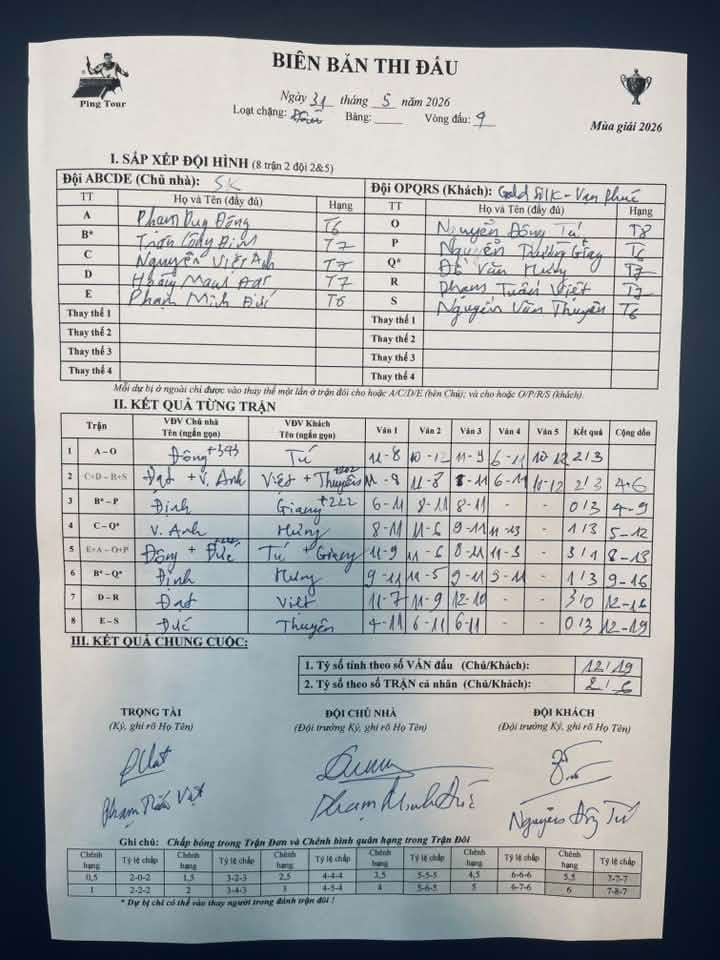 BIÊN BẢN THI ĐẤU
Ping Tour
Ngày 31 tháng 5 năm 2026
Loại chặng: Bảng: Vòng đấu: 9
Mùa giải 2026
I. SẮP XẾP ĐỘI HÌNH (8 trận 2 đội 2&5)
Đội ABCDE (Chủ nhà): SK
Đội OPQRS (Khách): Gold Silk - Vạn Phúc
TT Họ và Tên (đầy đủ) Hạng TT Họ và Tên (đầy đủ) Hạng
A Phạm Duy Đông T6 O Nguyễn Đông Tứ T8
B* Trần Công Định T7 P Nguyễn Trường Giang T6
C Nguyễn Việt Anh T7 Q* Đỗ Văn Hưng T7
D Hoàng Mạnh Đạt T7 R Phạm Tuấn Việt T7
E Phạm Minh Đức T6 S Nguyễn Văn Thuyên T6
Thay thế 1 Thay thế 1
Thay thế 2 Thay thế 2
Thay thế 3 Thay thế 3
Thay thế 4 Thay thế 4
Mỗi dự bị ở ngoài chỉ được vào thay thế một lần ở trận đôi cho hoặc A/C/D/E (bên Chủ); và cho hoặc O/P/R/S (khách).
II. KẾT QUẢ TỪNG TRẬN
Trận VĐV Chủ nhà Tên (ngắn gọn) VĐV Khách Tên (ngắn gọn) Ván 1 Ván 2 Ván 3 Ván 4 Ván 5 Kết quả Cộng dồn
1 A – O Đông +343 Tứ 11-8 10-12 11-9 6-11 10-12 2/3
2 C+D – R+S Đạt + V. Anh Việt + Thuyên 11-8 11-8 8-11 6-11 10-12 2/3 4-6
3 B* – P Định Giang +222 6-11 8-11 8-11 - - 0/3 4-9
4 C – Q* V. Anh Hưng 8-11 11-6 9-11 11-13 - 1/3 5-12
5 E+A – O+P Đông + Đức Tứ + Giang 11-9 11-6 8-11 11-3 - 3/1 8-13
6 B* – Q* Định Hưng 9-11 11-5 9-11 9-11 - 1/3 9-16
7 D – R Đạt Việt 11-7 11-9 12-10 - - 3/0 12-16
8 E – S Đức Thuyên 4-11 6-11 6-11 - - 0/3 12-19
III. KẾT QUẢ CHUNG CUỘC:
1. Tỷ số tính theo số VÁN đấu (Chủ/Khách): 12/19
2. Tỷ số theo số TRẬN cá nhân (Chủ/Khách): 2/6
TRỌNG TÀI ĐỘI CHỦ NHÀ ĐỘI KHÁCH
(Ký, ghi rõ Họ Tên) (Đội trưởng Ký, ghi rõ Họ Tên) (Đội trưởng Ký, ghi rõ Họ Tên)
Phạm Tuấn Việt Phạm Minh Đức Nguyễn Đông Tứ
Ghi chú: Chấp bóng trong Trận Đơn và Chênh bình quân hạng trong Trận Đôi
Chênh hạng Tỷ lệ chấp Chênh hạng Tỷ lệ chấp Chênh hạng Tỷ lệ chấp Chênh hạng Tỷ lệ chấp Chênh hạng Tỷ lệ chấp Chênh hạng Tỷ lệ chấp
0,5 2-0-2 1,5 3-2-3 2,5 4-4-4 3,5 5-5-5 4,5 6-6-6 5,5 7-7-7
1 2-2-2 2 3-4-3 3 4-5-4 4 5-6-5 5 6-7-6 6 7-8-7
* Dự bị chỉ có thể vào thay người trong đánh trận đôi !